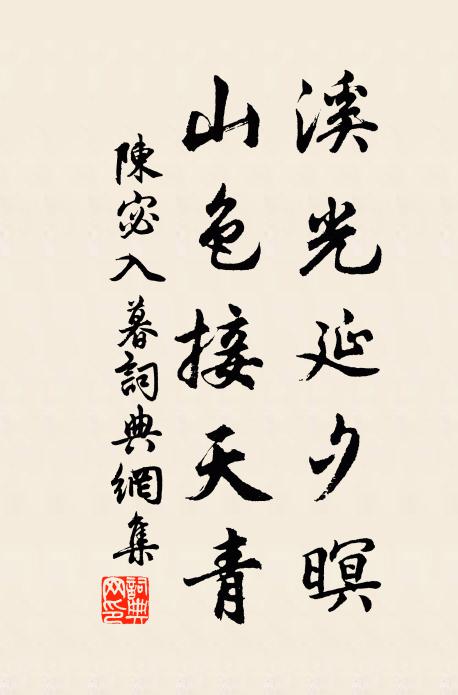 溪光延夕暝
山色接天青
陳宓入暮詞典網集
詞典网印